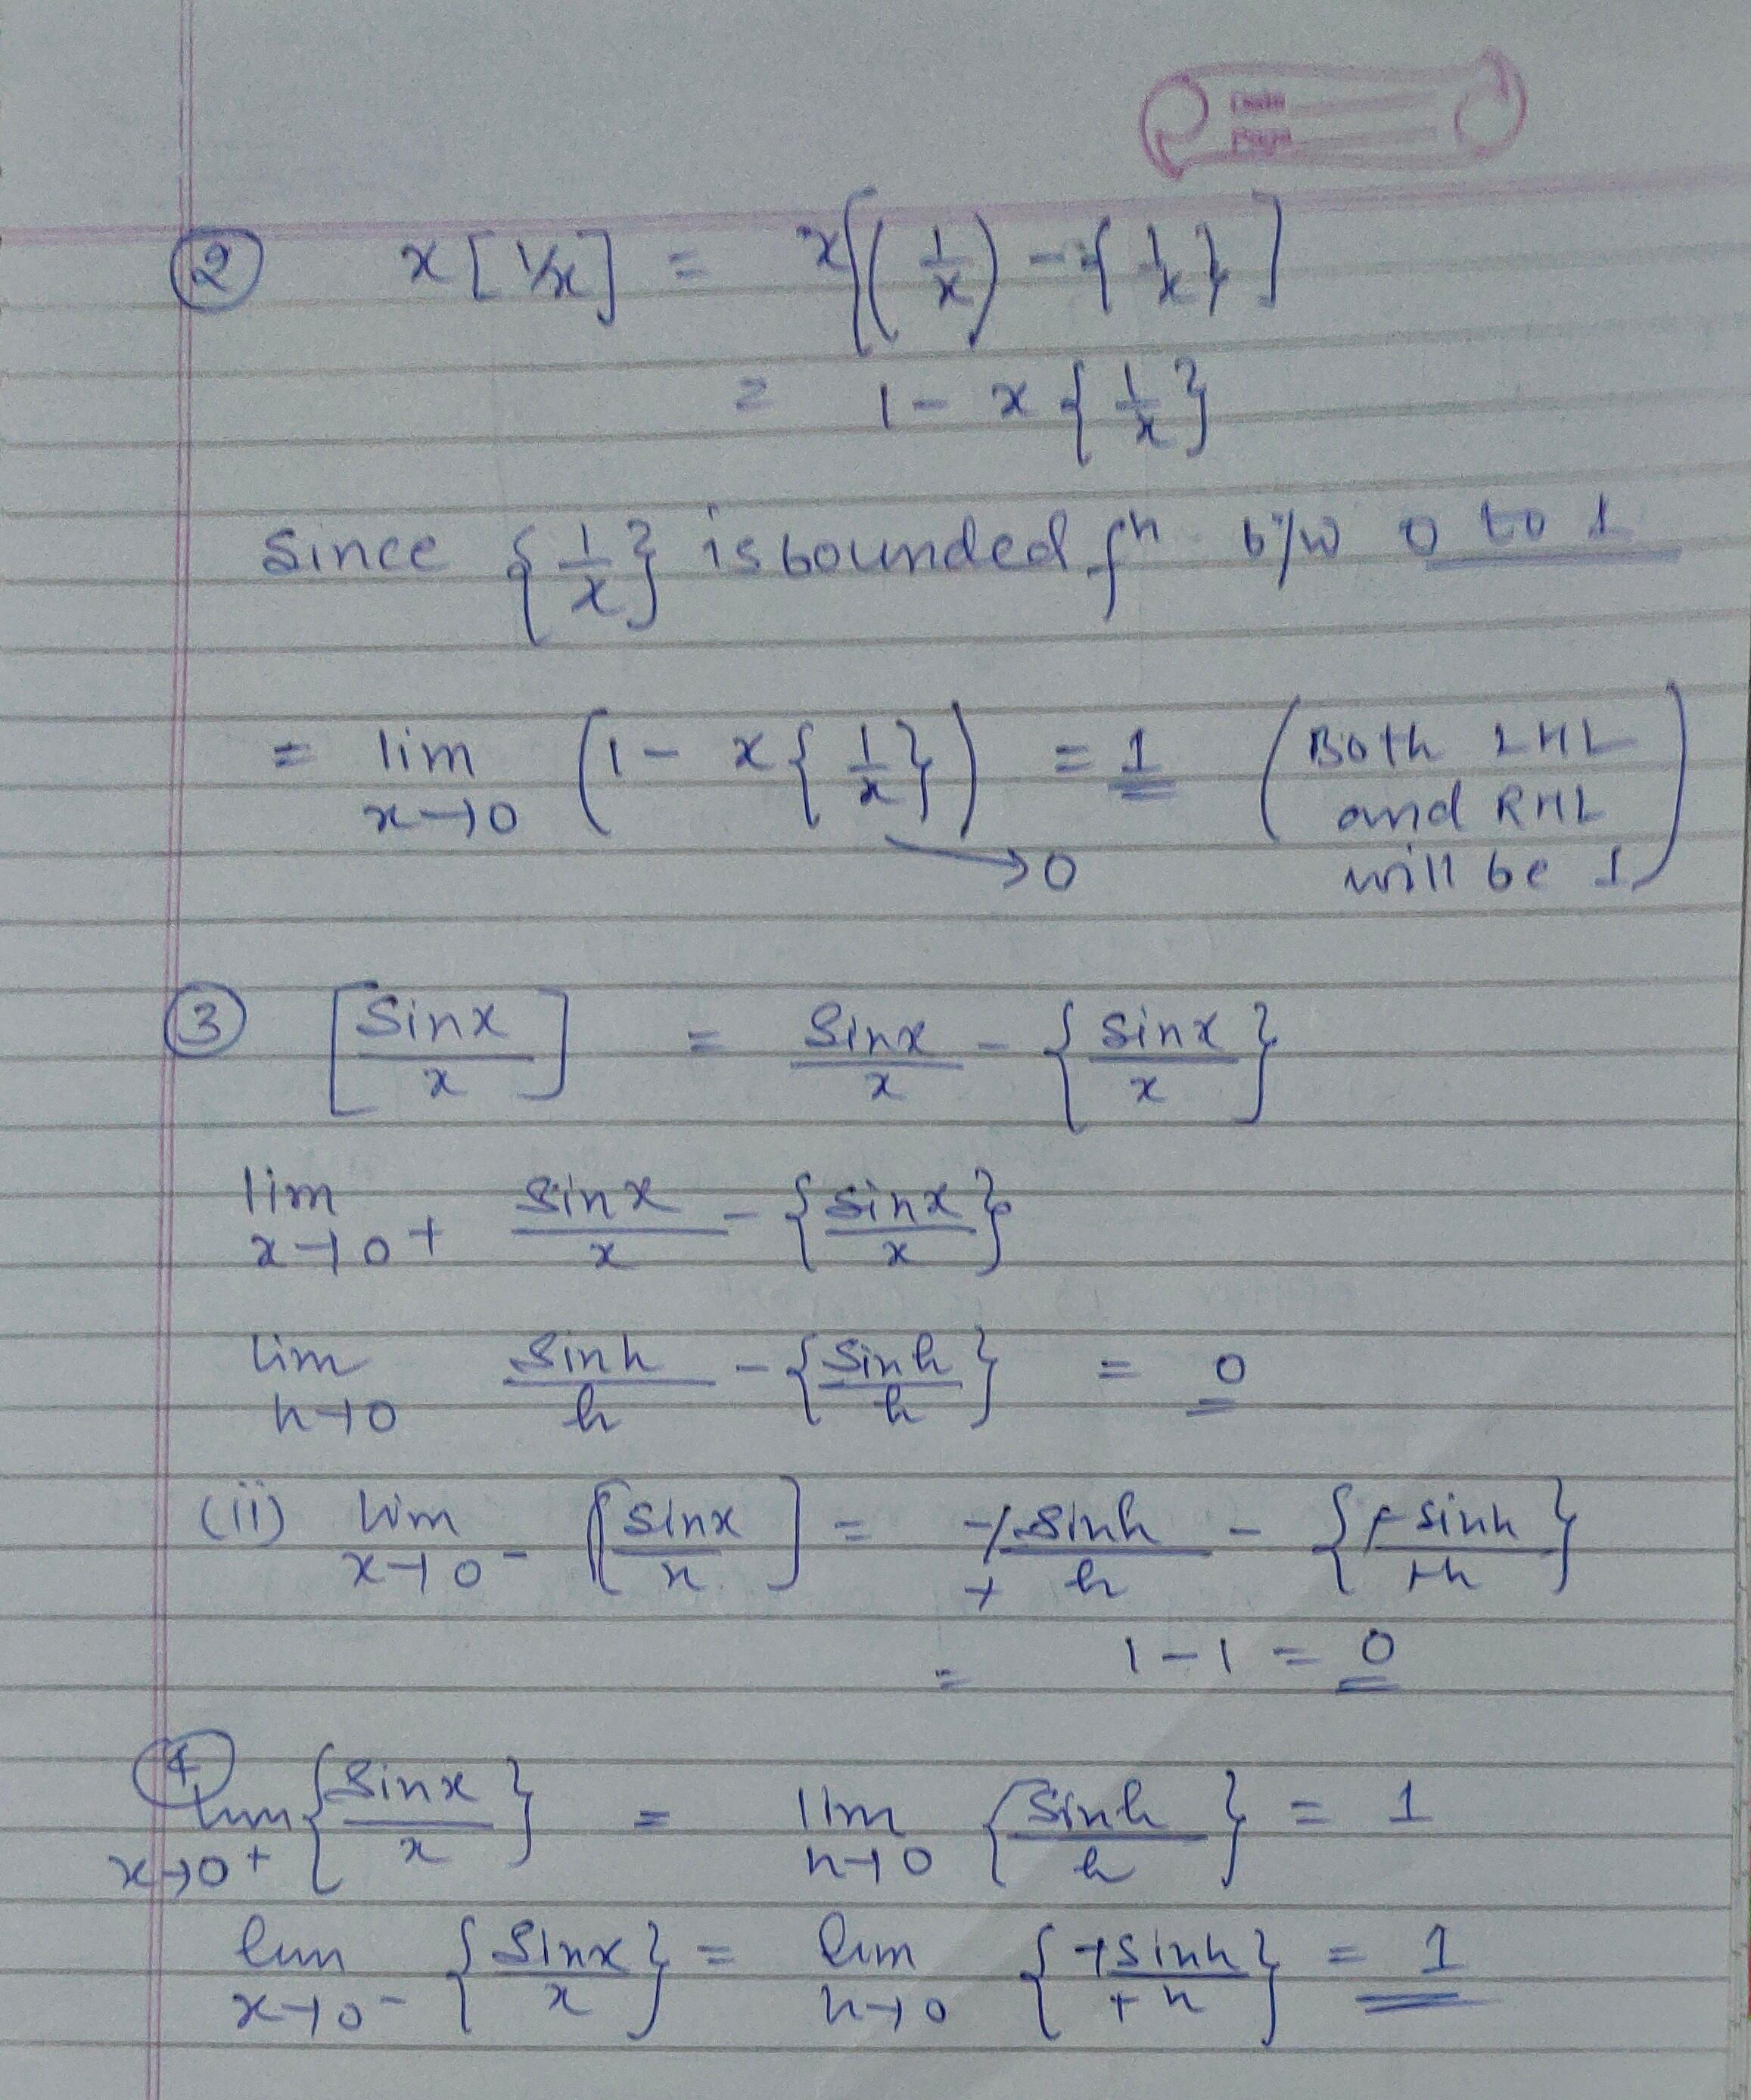 Date
Page
② x[1/x] = x[(1/x) - {1/x}]
= 1 - x{1/x}
Since {1/x} is bounded fn b/w 0 to 1
= lim x→0 (1 - x{1/x}) = 1 (Both LHL and RHL will be 1)
→0
③ [Sinx/x] = Sinx/x - {Sinx/x}
lim x→0+ Sinx/x - {Sinx/x}
lim h→0 Sinh/h - {Sinh/h} = 0
(ii) lim x→0- [Sinx/x] = +Sinh/+h - {+Sinh/+h}
= 1-1 = 0
④ lim x→0+ {Sinx/x} = lim h→0 {Sinh/h} = 1
lim x→0- {Sinx/x} = lim h→0 {+Sinh/+h} = 1